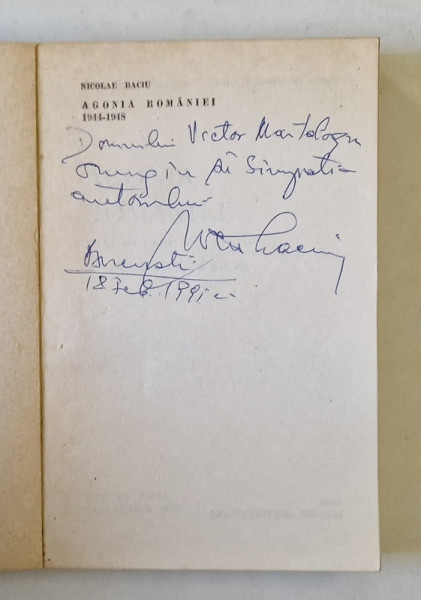 NICOLAE BACIU
AGONIA ROMÂNIEI
1944-1948
Domnului Victor
omagiu și Simpatia
autorului
București
18 Feb. 1991